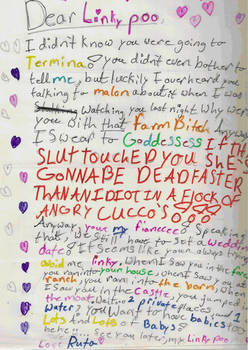 Dear Linky poo,
I didn't know you were going to
Termina & you didn't even bother to
tell me, but luckily I overheard you
talking to malon about it when I was
Watching you last night. Why were
you with that Farm Bitch Anyway
I Swear to Goddesses IF THE
SLUT TOUCHED YOU SHE
GONNA BE DEAD FASTER
THAN AN IDIOT IN A FLOCK OF
ANGRY CUCCO'S
Anyway your my fianceee! Speaking
that, we still have to set a wedding
date! It seems like your always trying
abid me Linky. When I saw in the
you ran into your house, when I saw
ranch, you ran into the barn,
I saw you in the Castle, you jumped
the moat.
water? You want to have babies
Lots And Lots of Babys
hehehe. see you later my LINKY poo
Love Ruto